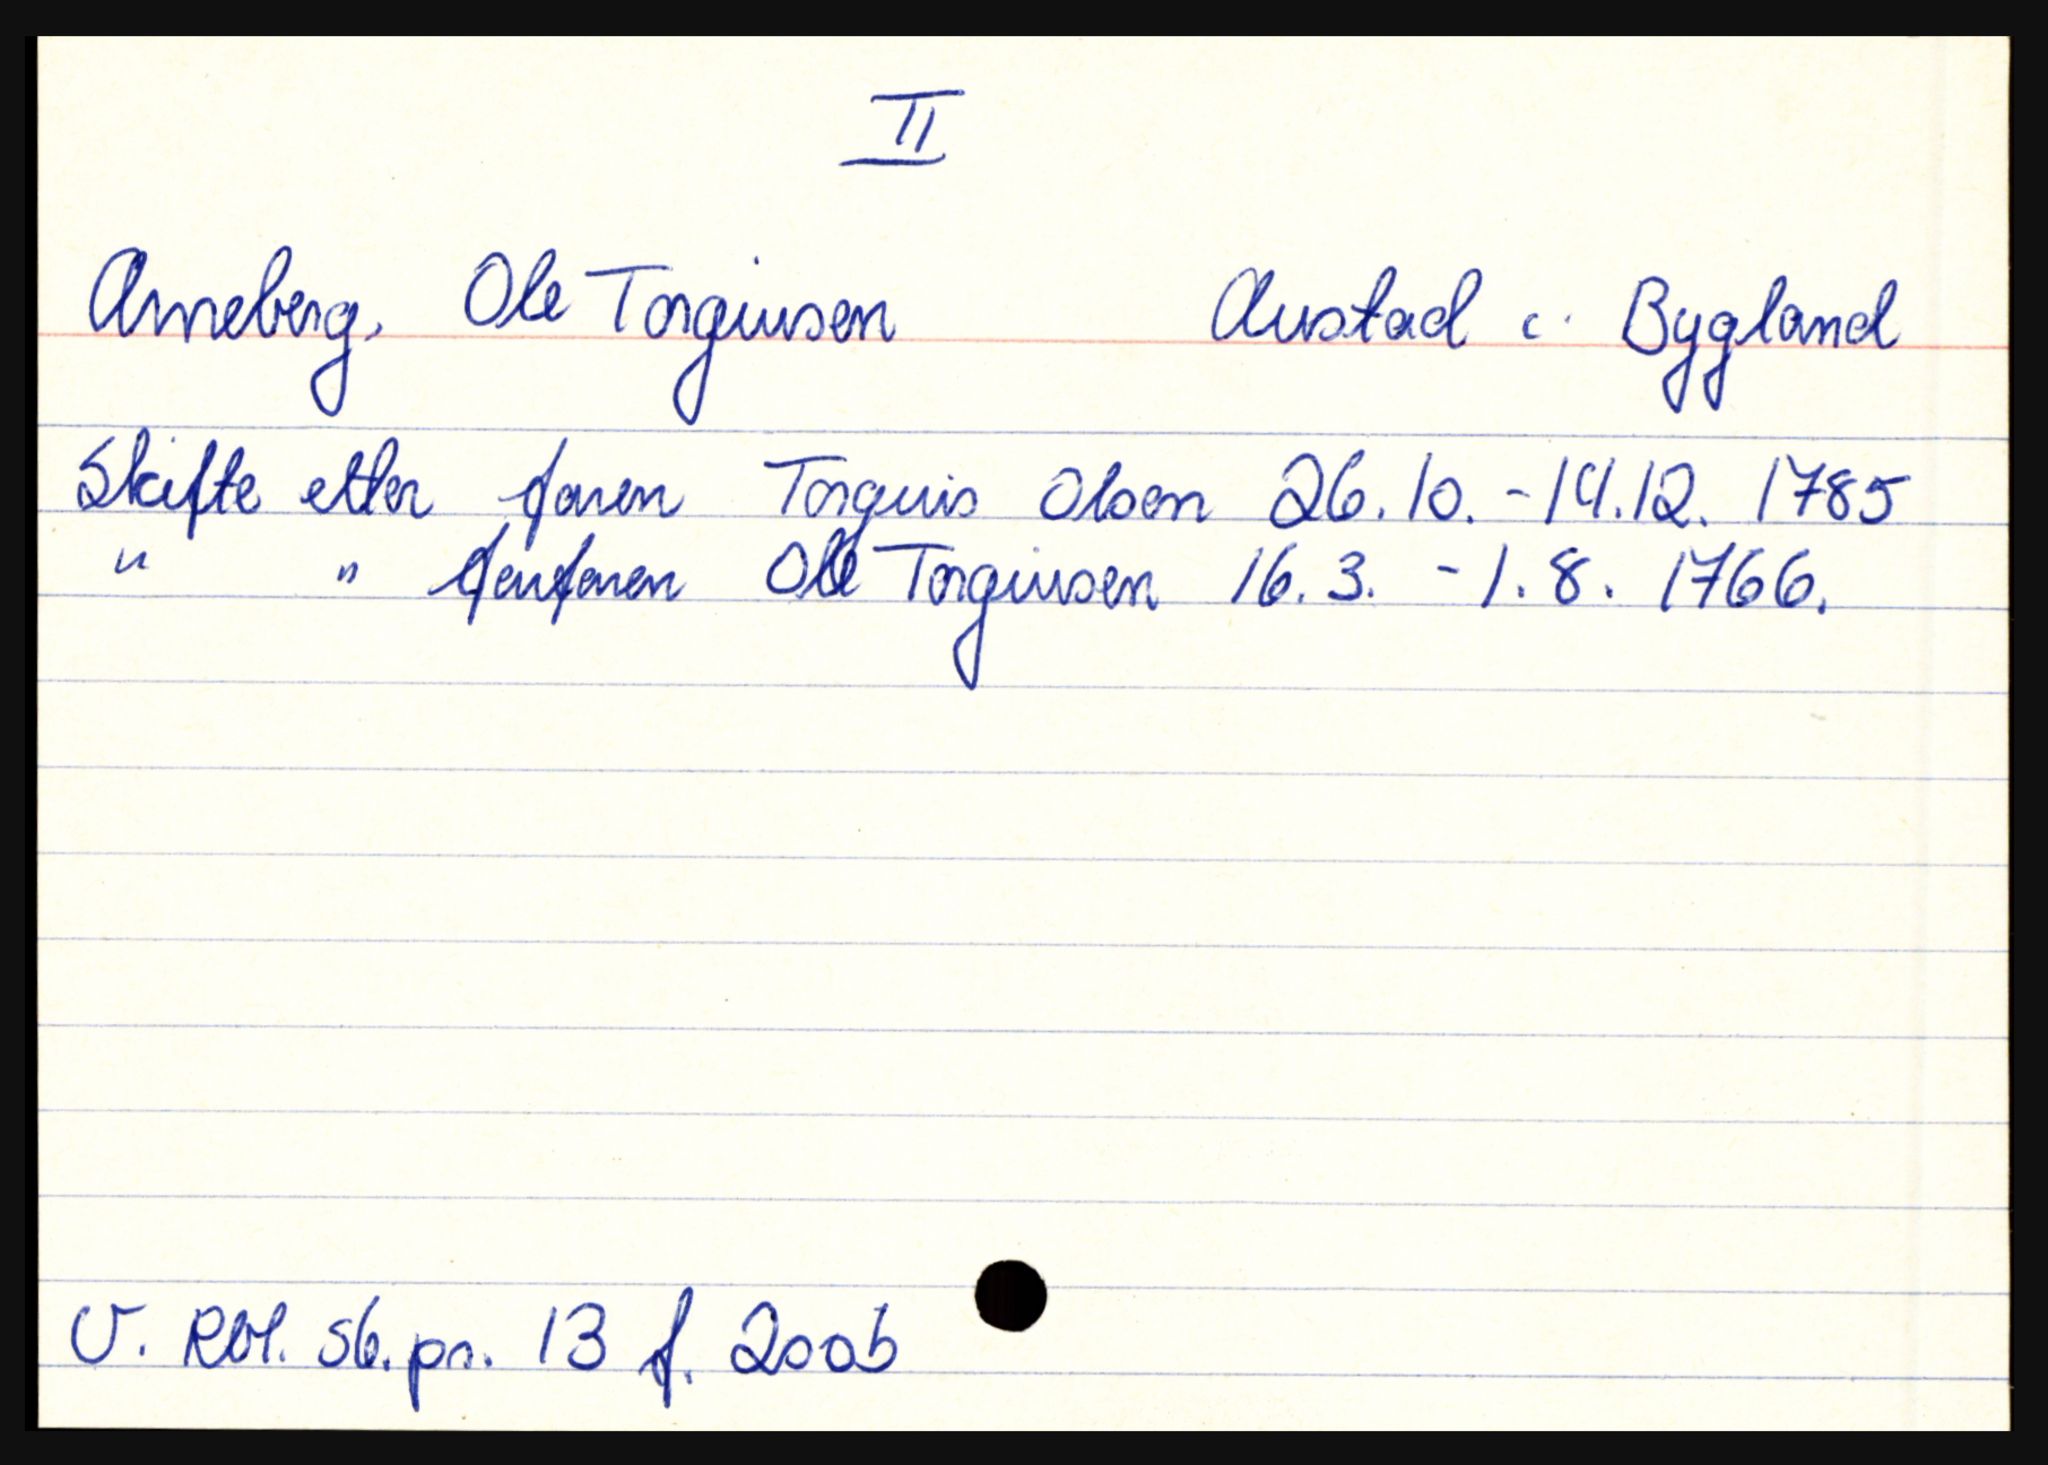 II
Arneberg, Ole Torgiusen Austad i Bygland
Skifte etter faren Torguis Olsen 26.10.-14.12. 1785
" " farfaren Ole Torgiusen 16.3. -1.8. 1766.
V. Rbl. sb.pr. 13 f. 200b